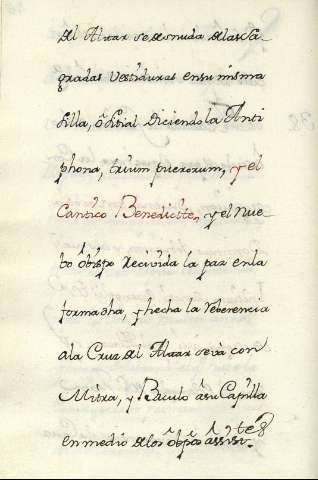 del Altar se desnuda de las Sa-
gradas Vestiduras en su misma
silla, ô sitial diciendo la Anti
phona, trium puerorum, y el
Cantico Benedicite, y el nue-
bo obispo recivida la paz en la
forma dha, y hecha la reberencia
a la Cruz del Altar se và con
Mitra, y Baculo â su Capilla
en medio de los obpos assis.tes